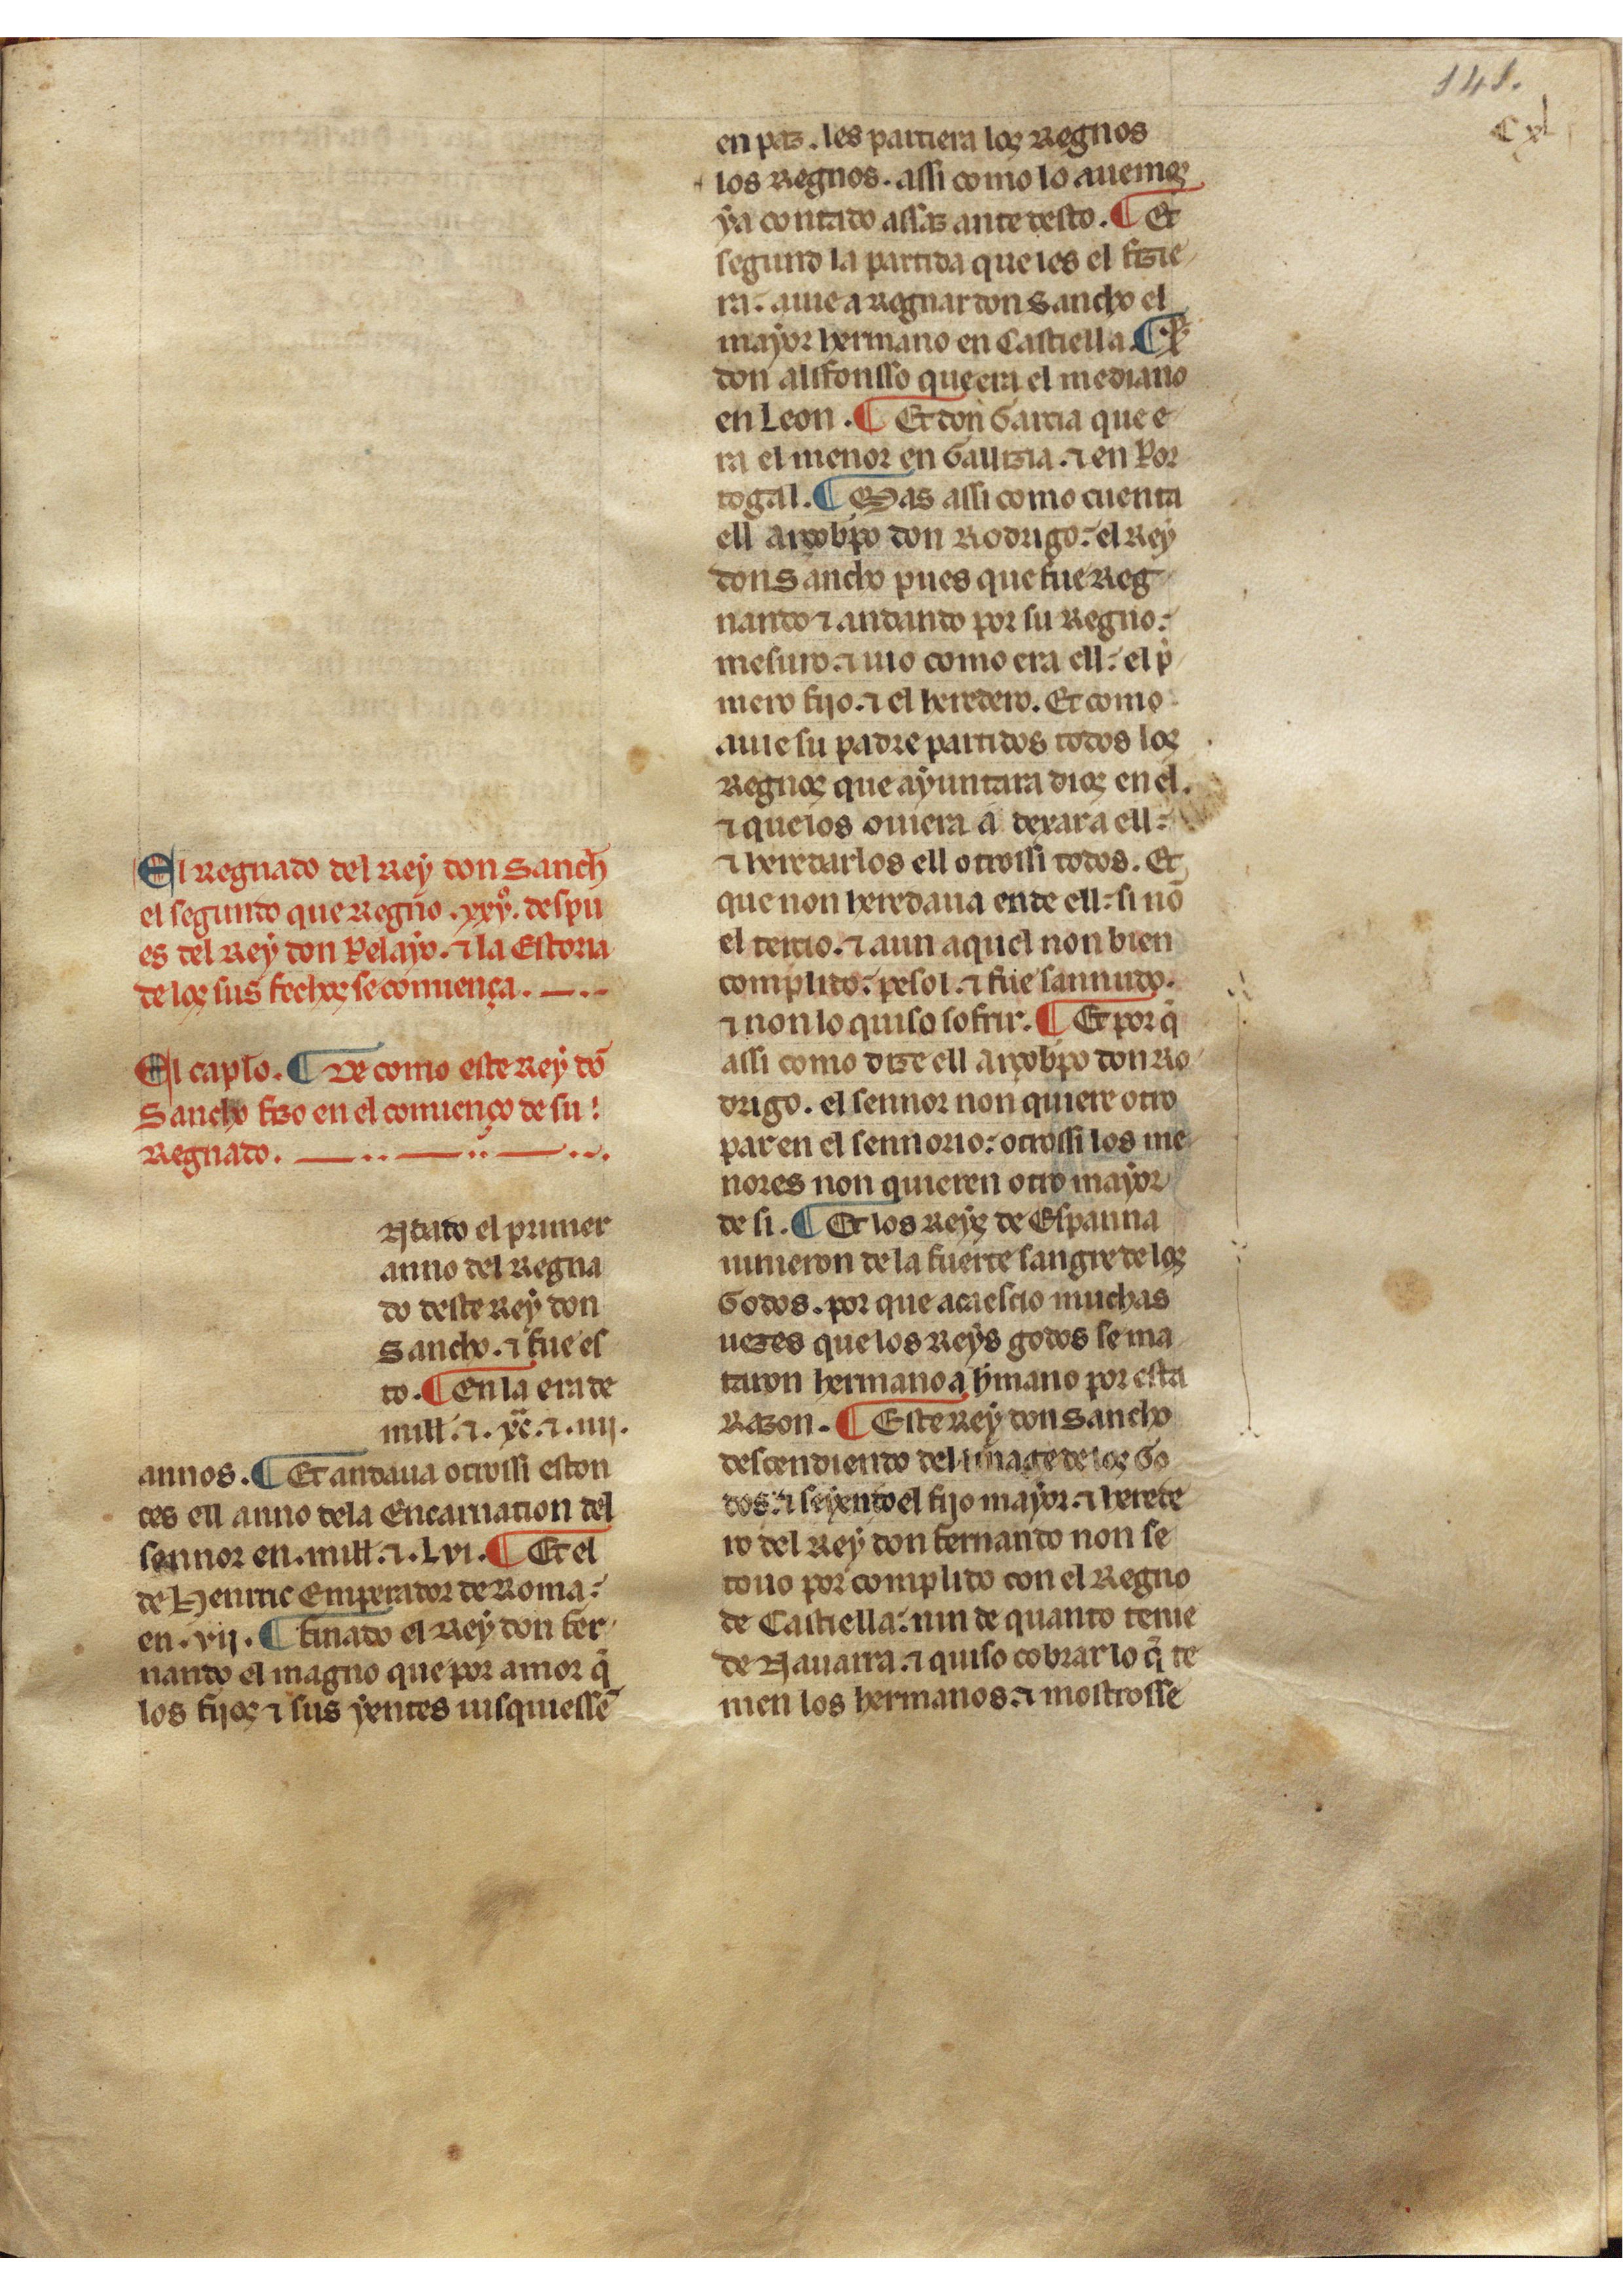 141.
C xl
El Regnado del Rey don Sanch̄
el segundo que Regno .xxv̊. despu
es del Rey don Pelayo. ⁊ la Estoria
de los sus fechos se comiença. —..-
El caplo. ¶ De como este Rey dō
Sancho fizo en el comienço de su :
Regnado. — .. — .. — ...
Ndado el primer
anno del Regna
do deste Rey don
Sancho. ⁊ fue es
to. ¶ En la era de
mill. ⁊. xc̄. ⁊. iiij.
annos. ¶ Et andaua otrossi eston
ces ell anno dela Encarnation del
sennor en. mill. ⁊. Lvi. ¶ Et el
de Henrric Emperador de Roma:
en. vij. ¶ finado el Rey don fer
nando el magno que por amor q̄
los fijos ⁊ sus yentes uisquiessē
en paz. les partiera los Regnos
los Regnos. assi como lo auemos
ya contado assaz ante desto. ¶ Et
segund la partida que les el fizie
ra. auie a Regnar don Sancho el
mayor hermano en Castiella. ¶
don alffonsso que era el mediano
en Leon. ¶ Et don Garcia que e
ra el menor en Gallizia. ⁊ en Por
togal. ¶ Mas assi como cuenta
ell Arçobpo don Rodrigo: el Rey
don Sancho pues que fue Reg
nando ⁊ andando por su Regno:
mesuro. ⁊ uio como era ell: el p̍
mero fijo. ⁊ el heredero. Et como
auie su padre partidos todos los
Regnos que ayuntara dios en el.
⁊ que los ouiera a dexara ell:
⁊ heredarlos ell otrossi todos. Et
que non heredaua ende ell: si nō
el tercio. ⁊ aun aquel non bien
complido: pesol. ⁊ fue sannudo.
⁊ non lo quiso sofrir. ¶ Et por q̄
assi como dize ell Arçobpo don Ro
drigo. el sennor non quiere otro
par en el sennorio: otrossi los me
nores non quieren otro mayor
de si. ¶ Et los Reys de Espanna
uinieron de la fuerte sangre de los
Godos. por que acaescio muchas
uezes que los Reys godos se ma
taron hermano a h̄mano por esta
Razon. ¶ Este Rey don Sancho
descendiendo del linage de los Go
dos: ⁊ seyendo el fijo mayor. ⁊ herede
ro del Rey don fernando non se
touo por complido con el Regno
de Castiella: nin de quanto tenie
de Nauarra. ⁊ quiso cobrar lo q̄ te
nien los hermanos. ⁊ mostrosse